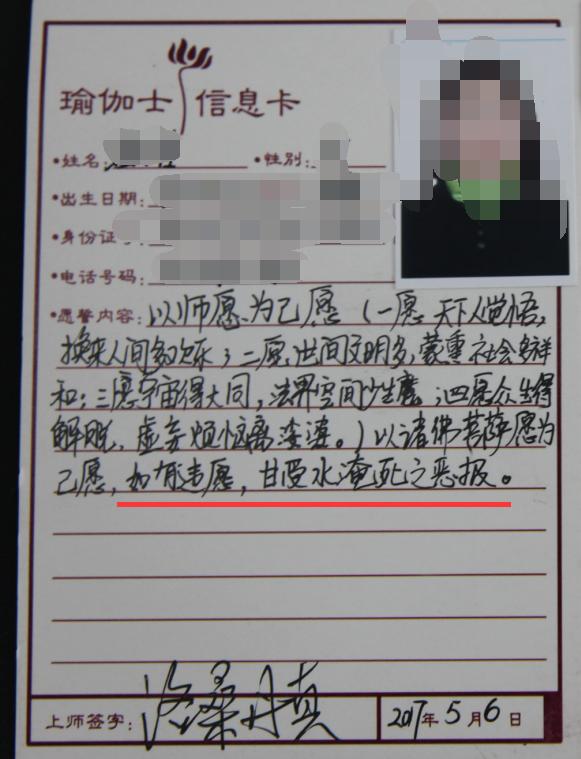 瑜伽士 信息卡
•姓名: •性别:
•出生日期:
•身份证
•电话号码:
•愿誓内容: 以师愿为己愿（一愿天下人觉悟,
换来人间多欢乐；二愿世间文明多，蒙熏社会多祥
和；三愿宇宙得大同，法界空间少生魔；四愿众生得
解脱，虚妄烦恼离娑婆。）以诸佛菩萨愿为
己愿，如有违愿，甘受水淹死之恶报。
上师签字: 洛桑丹真 2017年5月6日